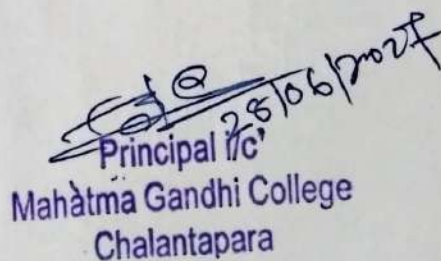 28/06/2024
Principal i/c
Mahatma Gandhi College
Chalantapara